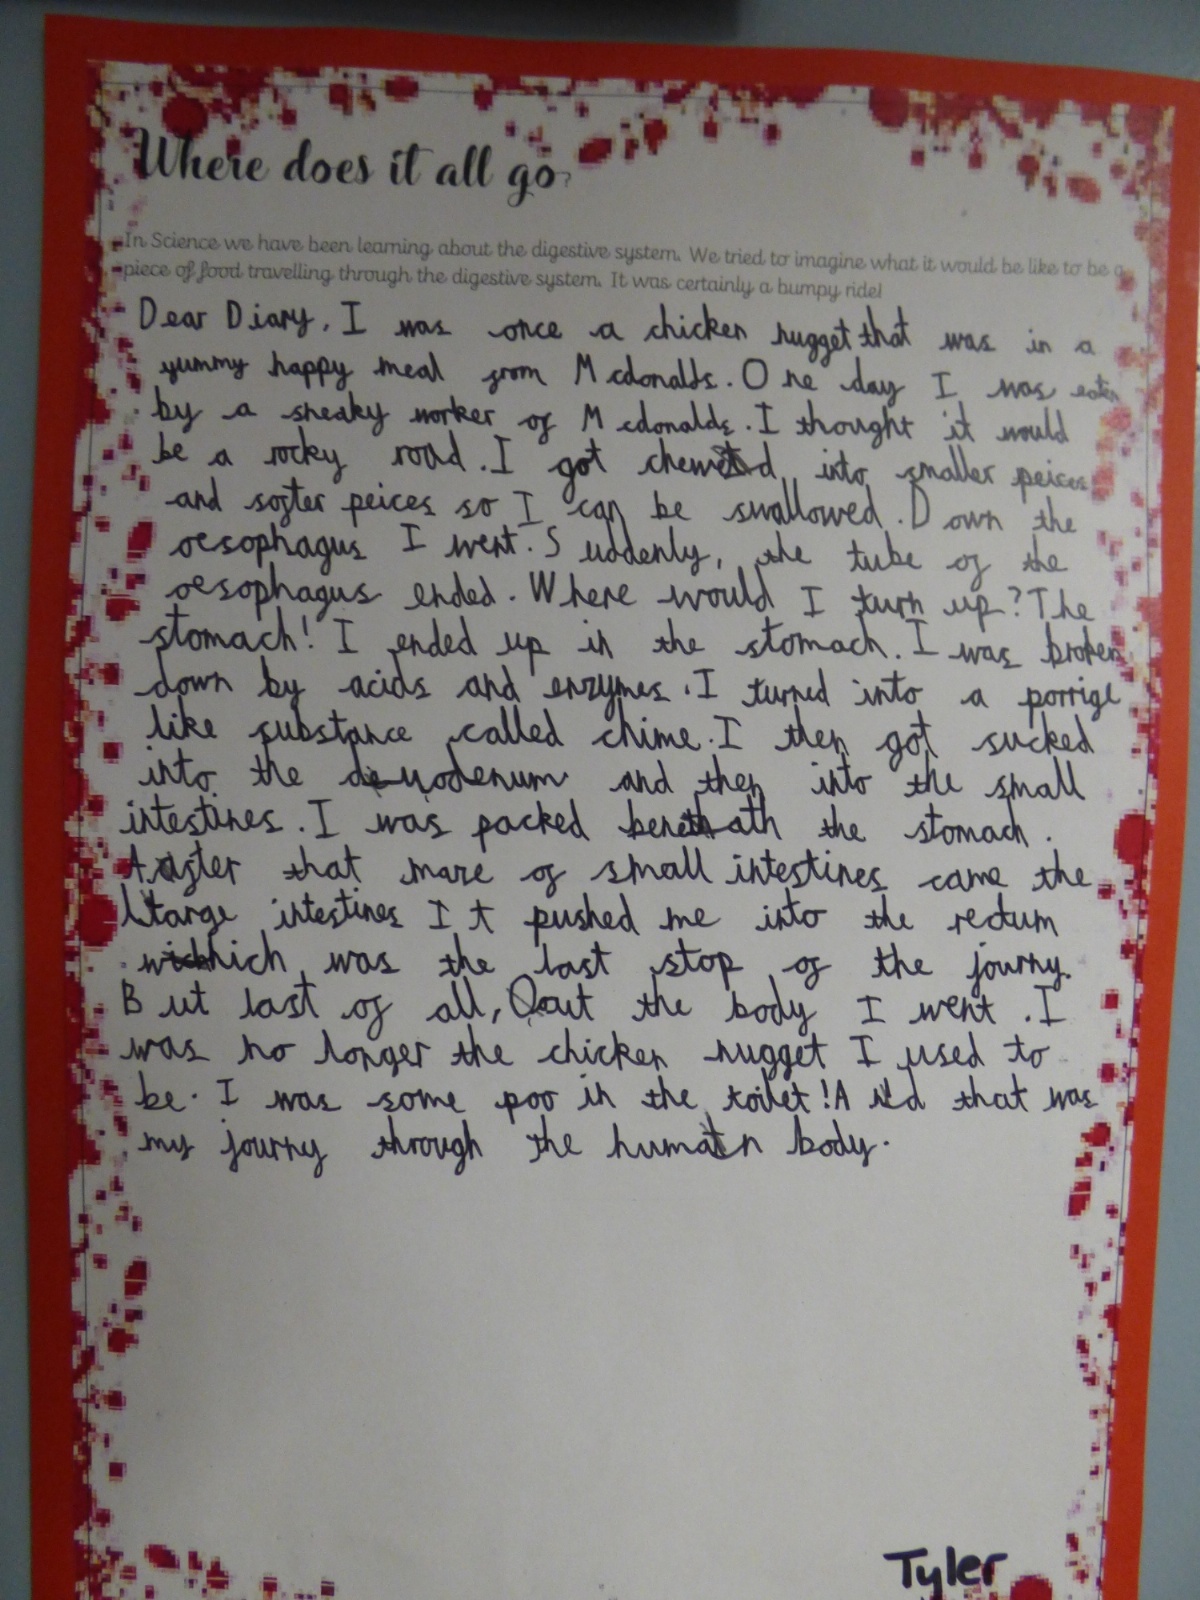 Where does it all go?
In Science we have been learning about the digestive system. We tried to imagine what it would be like to be a
piece of food travelling through the digestive system. It was certainly a bumpy ride!
Dear Diary, I was once a chicken nugget that was in a
yummy happy meal from Mcdonalds. One day I was eaten
by a sneaky worker of Mcdonalds. I thought it would
be a rocky road. I got chewed into smaller peices
and softer peices so I can be swallowed. Down the
oesophagus I went. Suddenly, the tube of the
oesophagus ended. Where would I turn up? The
stomach! I ended up in the stomach. I was broken
down by acids and enzymes. I turned into a porrige
like substance called chime. I then got sucked
into the duodenum and then into the small
intestines. I was packed beneath the stomach.
After that maze of small intestines came the
large intestines It pushed me into the rectum
which was the last stop of the journy.
But last of all, out the body I went. I
was no longer the chicken nugget I used to
be. I was some poo in the toilet! And that was
my journy through the human body.
Tyler